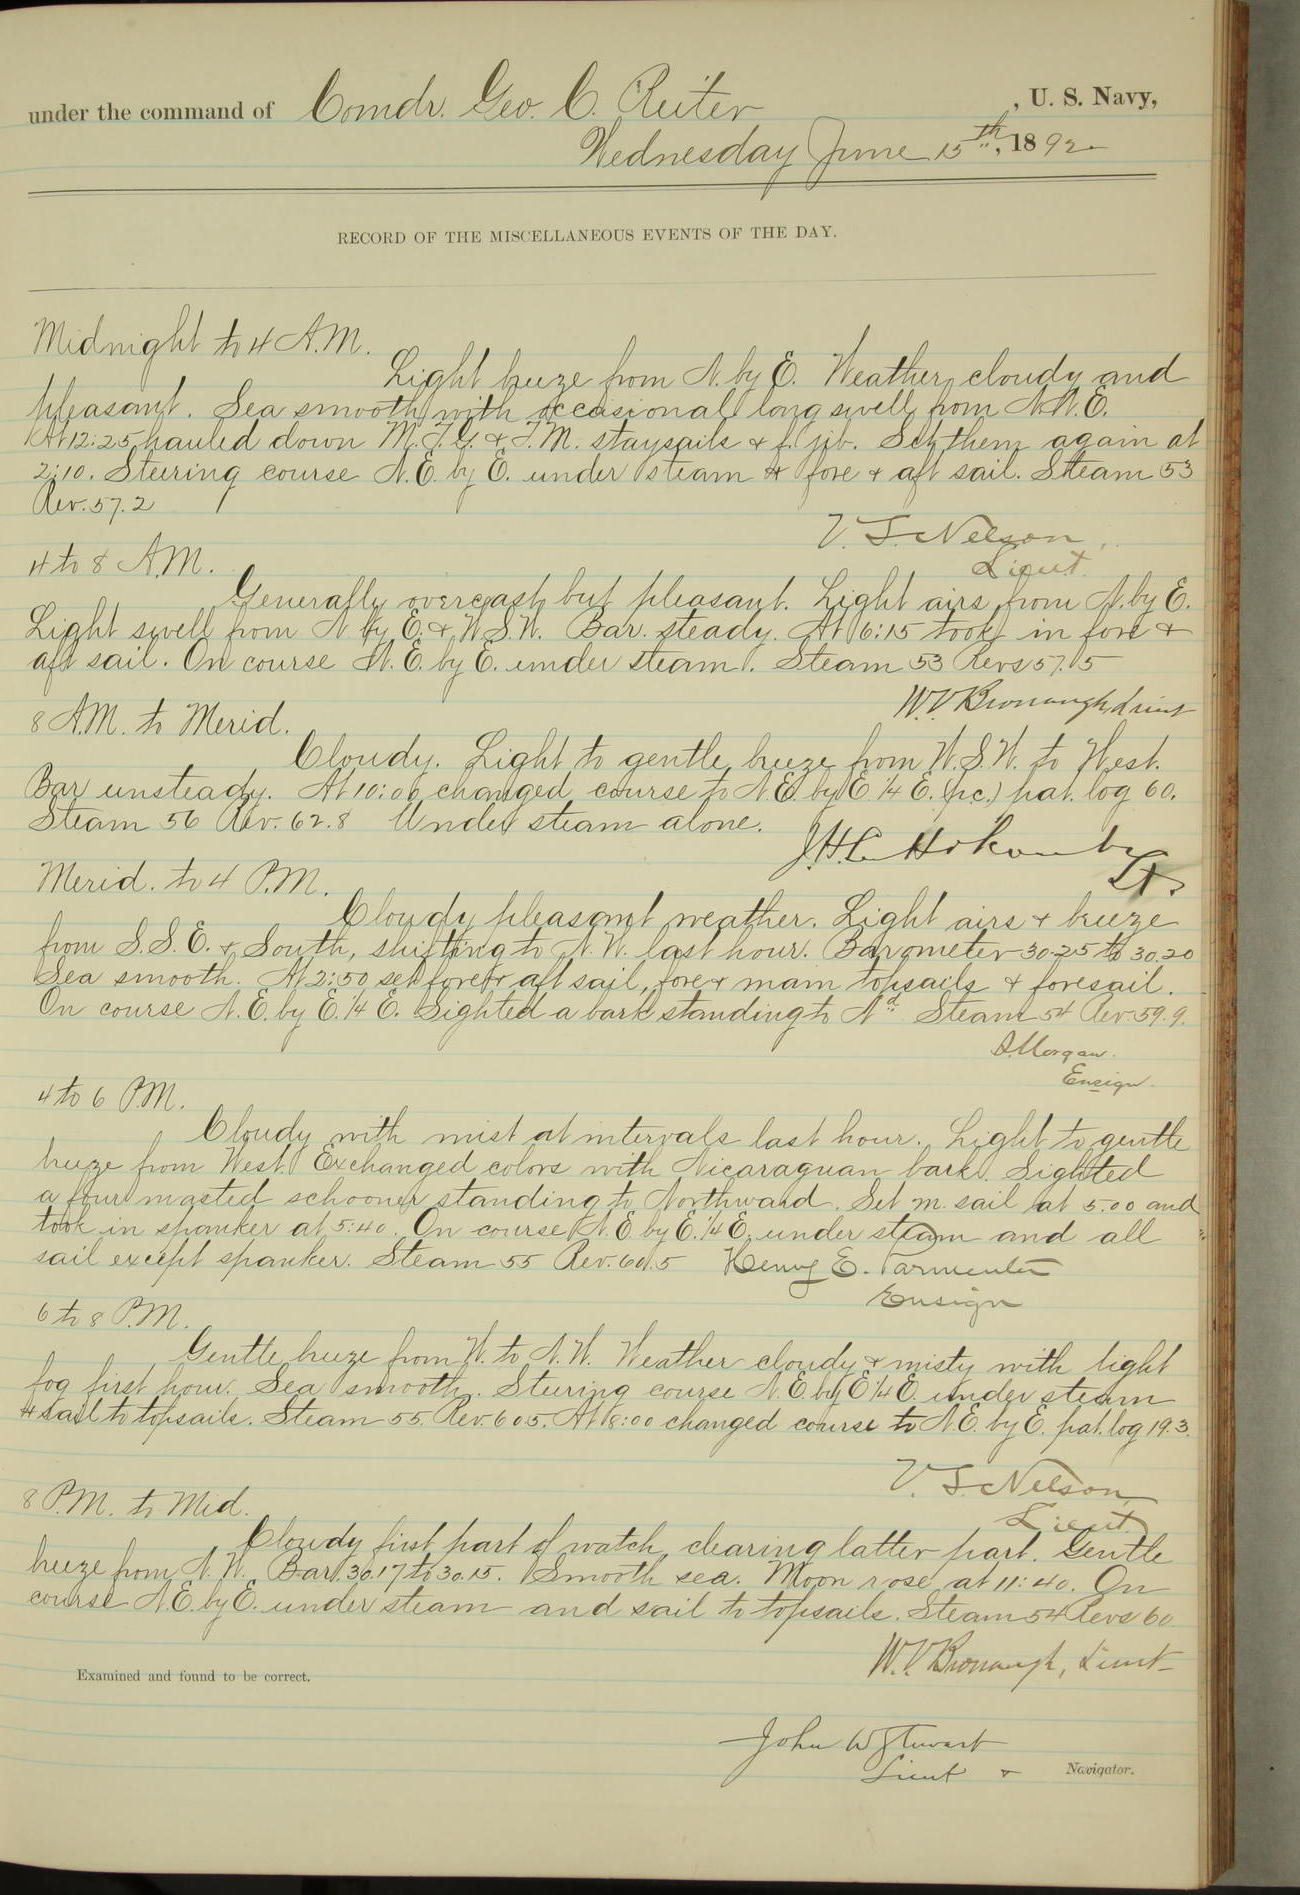 under the command of Comdr. Geo. C. Reiter, U. S. Navy,
Wednesday June 15th, 1892
RECORD OF THE MISCELLANEOUS EVENTS OF THE DAY.
Midnight to 4 A.M.
Light breeze from N. by E. Weather cloudy and
pleasant. Sea smooth with occasional long swell from N.N.E.
At 12:25 hauled down M.T.G. & T.M. staysails & f. jib. Set them again at
2:10. Steering course N.E. by E. under steam & fore & aft sail. Steam 53
Rev. 57.2
V. S. Nelson,
Lieut.
4 to 8 A.M.
Generally overcast but pleasant. Light airs from N. by E.
Light swell from N by E. & W.S.W. Bar. steady. At 6:15 took in fore &
aft sail. On course N.E. by E. under steam. Steam 53 Revs 57.5
W. V. Bronaugh, Lieut
8 A.M. to Merid.
Cloudy. Light to gentle breeze from W.S.W. to West.
Bar unsteady. At 10:06 changed course to N.E. by E 1/4 E. (p.c.) pat. log 60.
Steam 56 Rev. 62.8 Under steam alone.
Lt.
Merid. to 4 P.M.
Cloudy pleasant weather. Light airs & breeze
from S.S.E. & South, shifting to N.W. last hour. Barometer 30.25 to 30.20
Sea smooth. At 2:50 set fore & aft sail, fore & main topsails & foresail.
On course N.E. by E. 1/4 E. Sighted a bark standing to Nd. Steam 54 Rev. 59.9.
Morgan.
Ensign.
4 to 6 P.M.
Cloudy with mist at intervals last hour. Light to gentle
breeze from West. Exchanged colors with Nicaraguan bark. Sighted
a four masted schooner standing to Northward. Set m. sail at 5.00 and
took in spanker at 5:40. On course N.E. by E. 1/4 E. under steam and all
sail except spanker. Steam 55 Rev. 60.5 Henry E. Parmenter
Ensign
6 to 8 P.M.
Gentle breeze from W. to N.W. Weather cloudy & misty with light
fog first hour. Sea smooth. Steering course N.E. by E 1/4 E. under steam
& sail to topsails. Steam 55. Rev. 60.5. At 8:00 changed course to N.E. by E. pat. log 19.3.
V. S. Nelson,
Lieut.
8 P.M. to Mid.
Cloudy first part of watch, clearing latter part. Gentle
breeze from N.W. Bar. 30.17 to 30.15. Smooth sea. Moon rose at 11:40. On
course N.E. by E. under steam and sail to topsails. Steam 54 Revs 60
W. V. Bronaugh, Lieut
Examined and found to be correct.
John W Stewart
Lieut & Navigator.